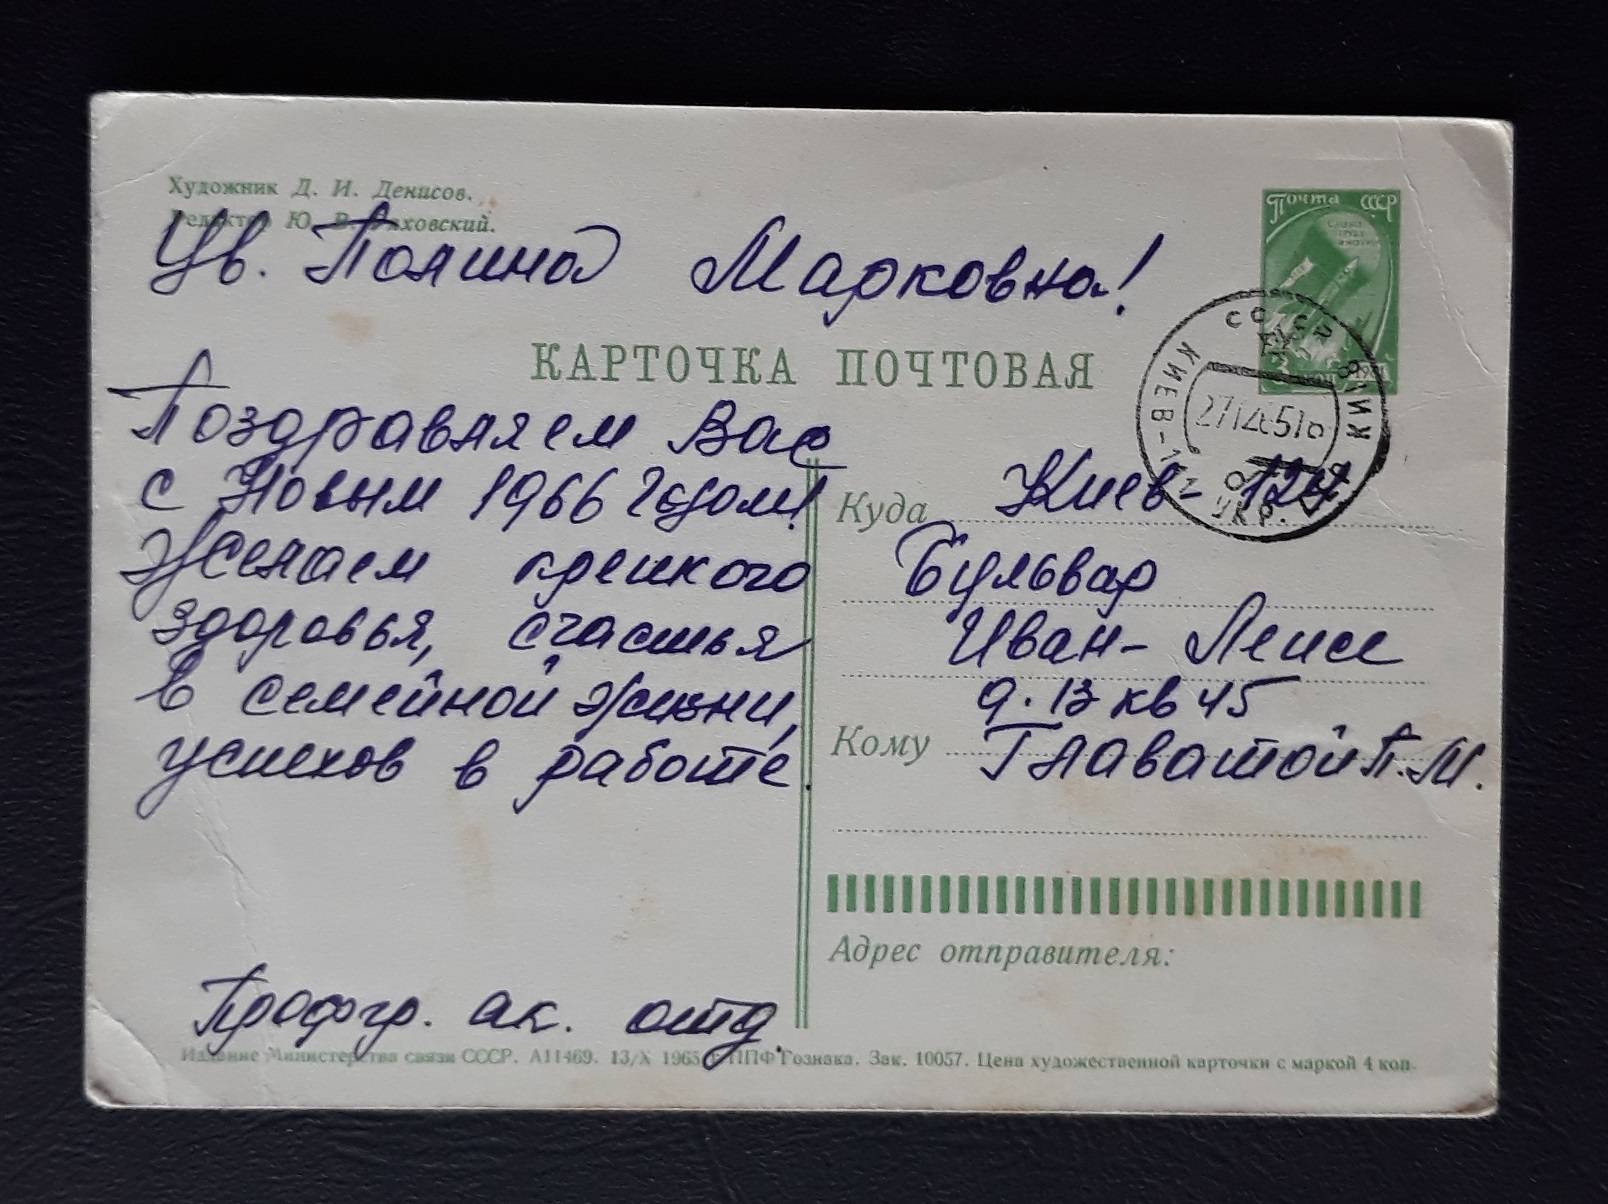 Художник Д. И. Денисов.
Редактор Ю.
Почта СССР
Ув. Полина Марковна!
КАРТОЧКА ПОЧТОВАЯ
КИЕВ
УКР.
Поздравляем Вас
с Новым 1966 годом!
Желаем крепкого
здоровья, счастья
в семейной жизни,
успехов в работе.
Профгр. ак. отд.
Куда Киев-124
Бульвар
Иван-Лепсе
д. 13 кв 45
Кому Главатой П.М.
Адрес отправителя:
Издание Министерства связи СССР. А11469. 13/X 1965 г. ППФ Гознака. Зак. 10057. Цена художественной карточки с маркой 4 коп.